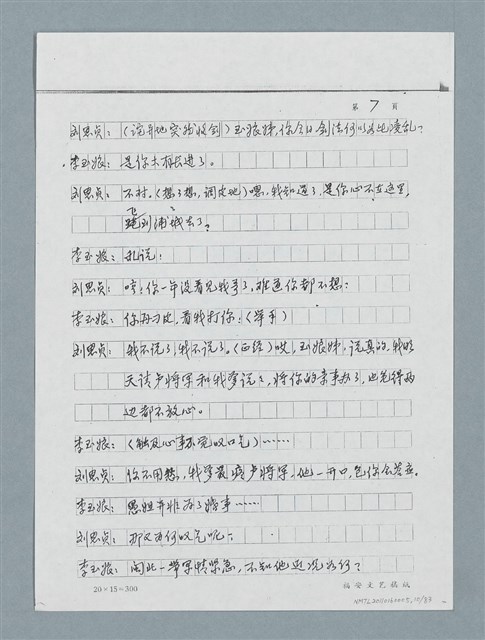 第 7 页
刘思贞：（诧异地突然收剑）玉娘妹，你今日剑法何以如此凌乱？
李玉娘：是你大有长进了。
刘思贞：不对。（想了想，调皮地）嗯，我知道了，是你心不在这里，
飞到浦城去了。
李玉娘：乱说！
刘思贞：哼！你一年没看见我哥了，难道你都不想？
李玉娘：你再刁皮，看我打你！（举手）
刘思贞：我不说了，我不说了。（正经）哎，玉娘妹，说真的，我明
天请卢将军和我爹说说，将你的亲事办了，也免得两
边都不放心。
李玉娘：（触及心事不觉叹口气）……
刘思贞：你不用愁，我爹最疼卢将军，他一开口，包你会答应。
李玉娘：愚姐并非为了婚事……
刘思贞：那又为何叹气呢？
李玉娘：闽北一带军情紧急，不知他近况如何？
20×15＝300
福安文艺稿纸